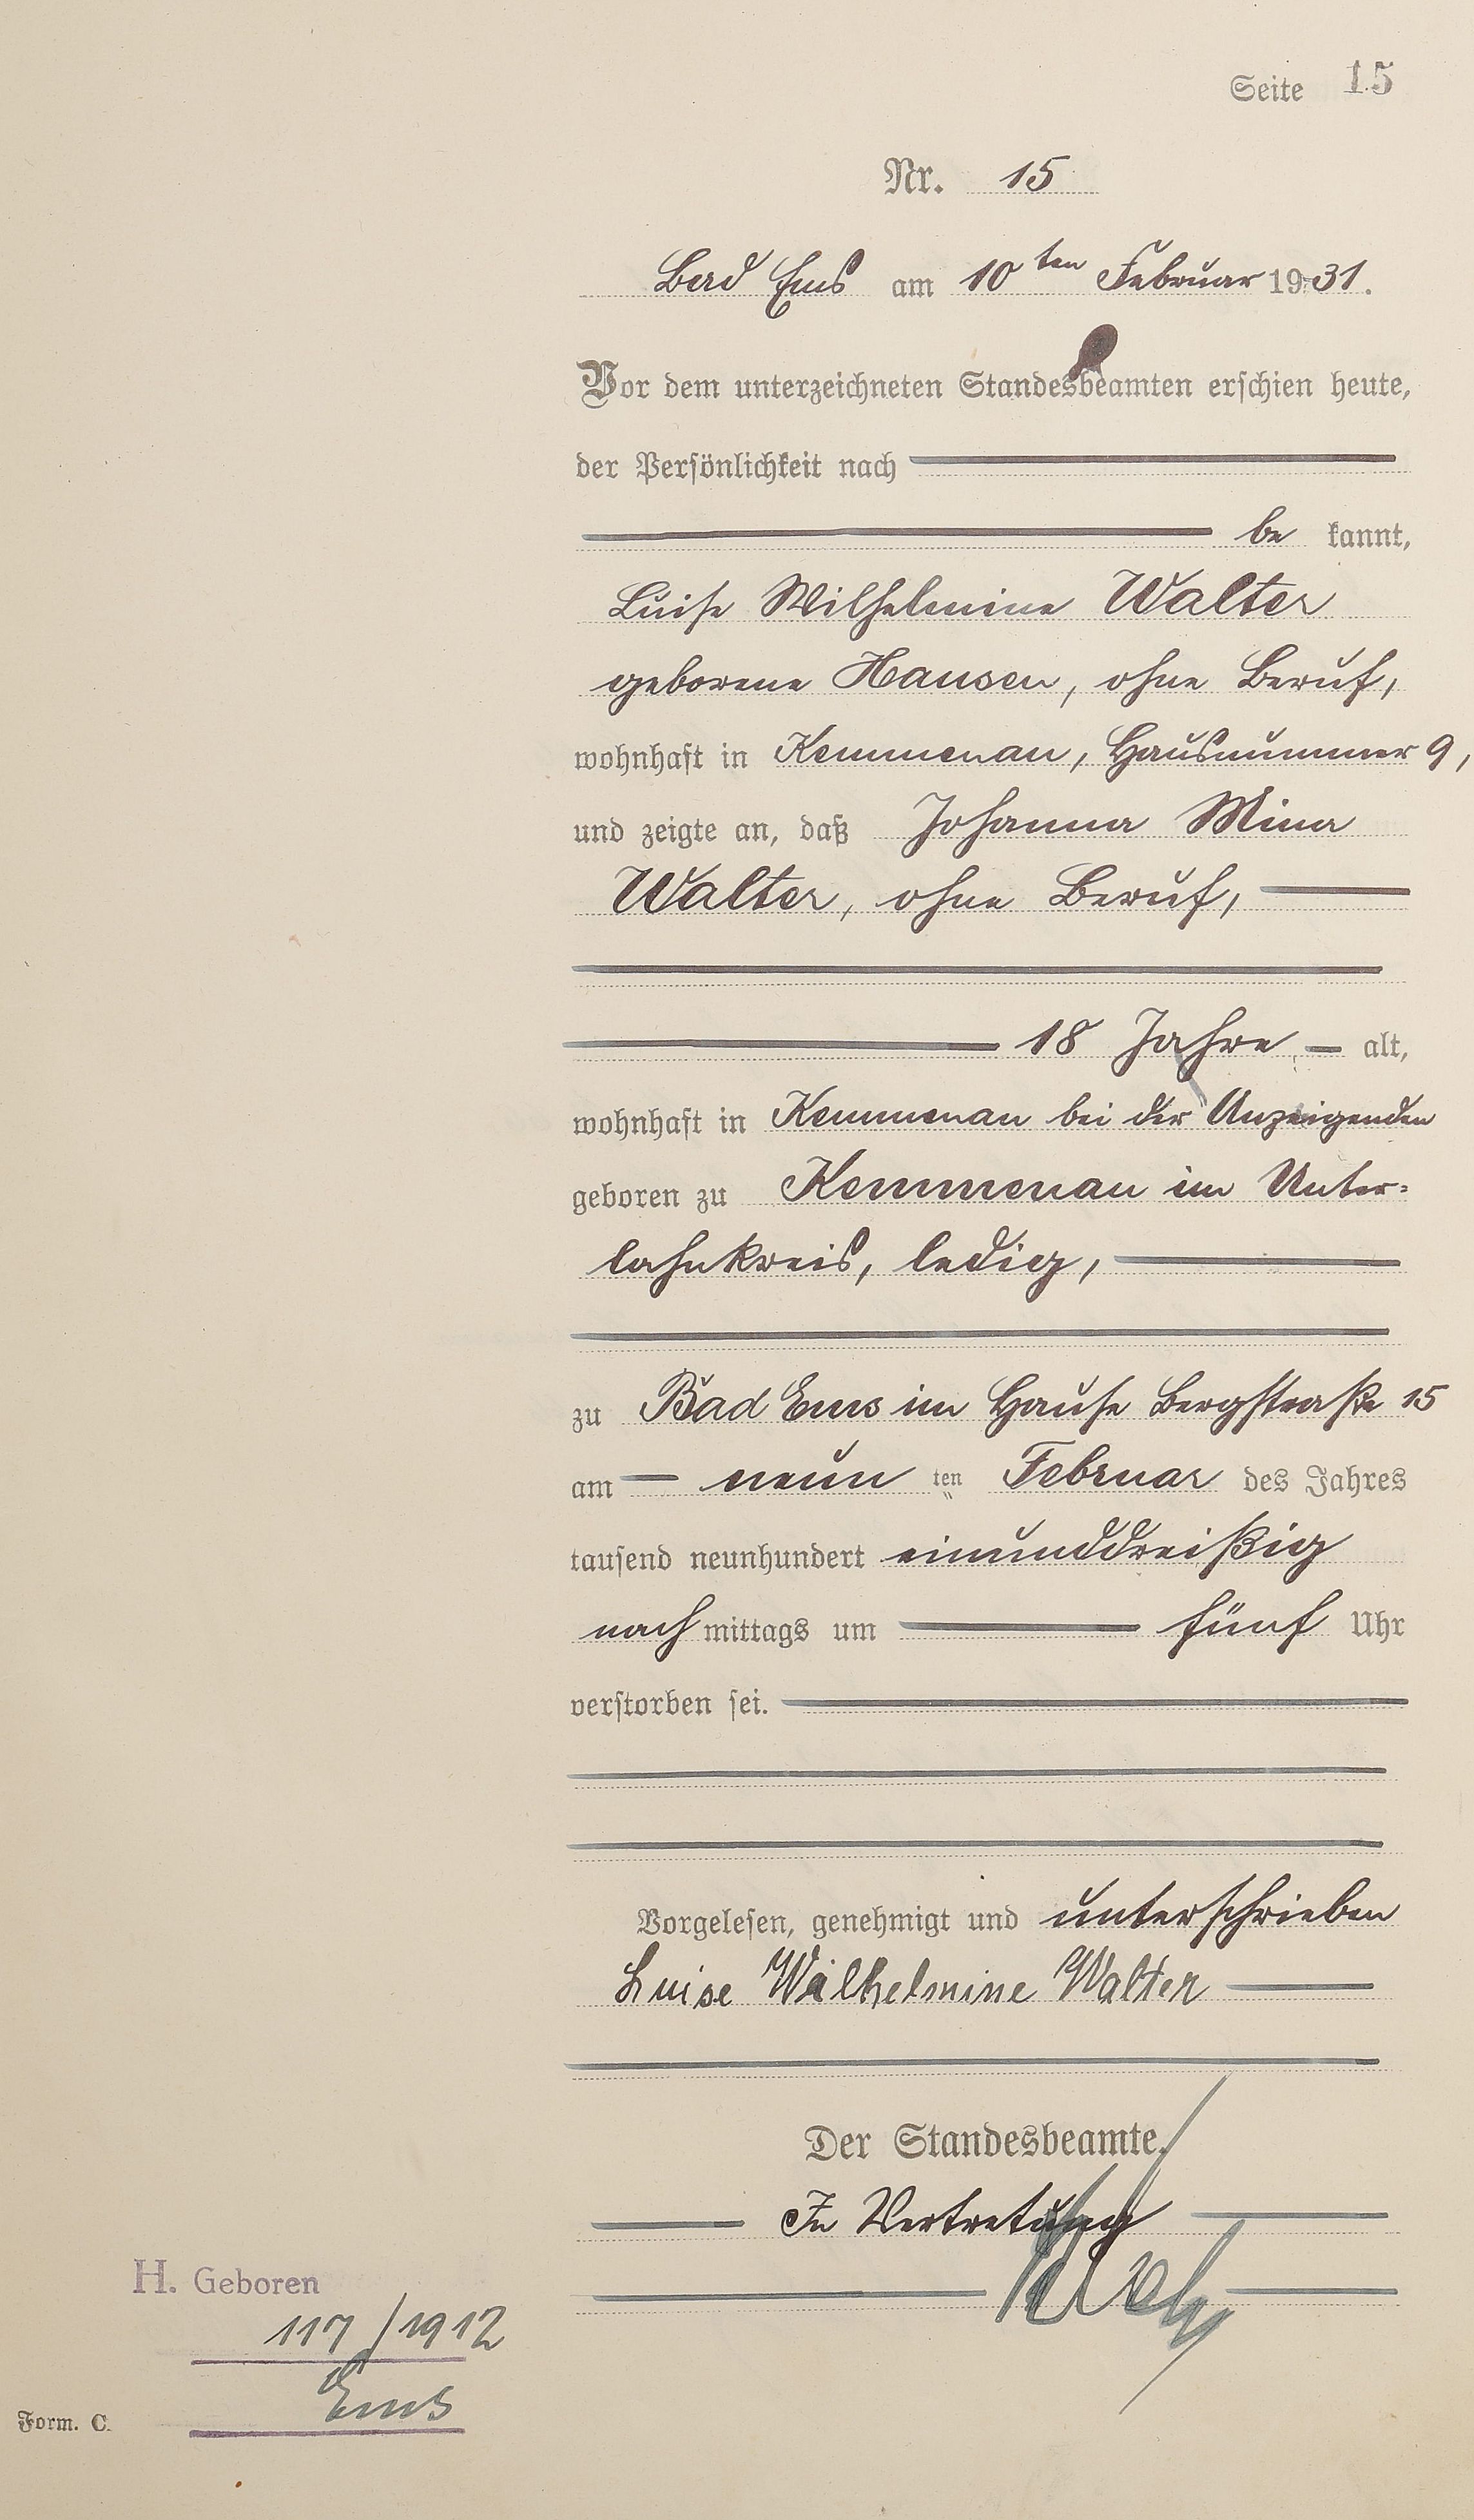 Seite 15
Nr. 15
Bad Ems am 10ten Februar 1931.
Vor dem unterzeichneten Standesbeamten erschien heute,
der Persönlichkeit nach
be kannt,
Luise Wilhelmine Walter
geborene Hausen, ohne Beruf,
wohnhaft in Kemmenau, Hausnummer 9,
und zeigte an, daß Johanna Mina
Walter, ohne Beruf,
18 Jahre alt,
wohnhaft in Kemmenau bei der Anzeigenden
geboren zu Kemmenau im Unter-
lahnkreis, ledig,
zu Bad Ems im Hause Bergstraße 15
am neun ten Februar des Jahres
tausend neunhundert einunddreißig
nach mittags um fünf Uhr
verstorben sei.
Vorgelesen, genehmigt und unterschrieben
Luise Wilhelmine Walter
Der Standesbeamte.
In Vertretung
H. Geboren
117/1912
Ems
Form. C.